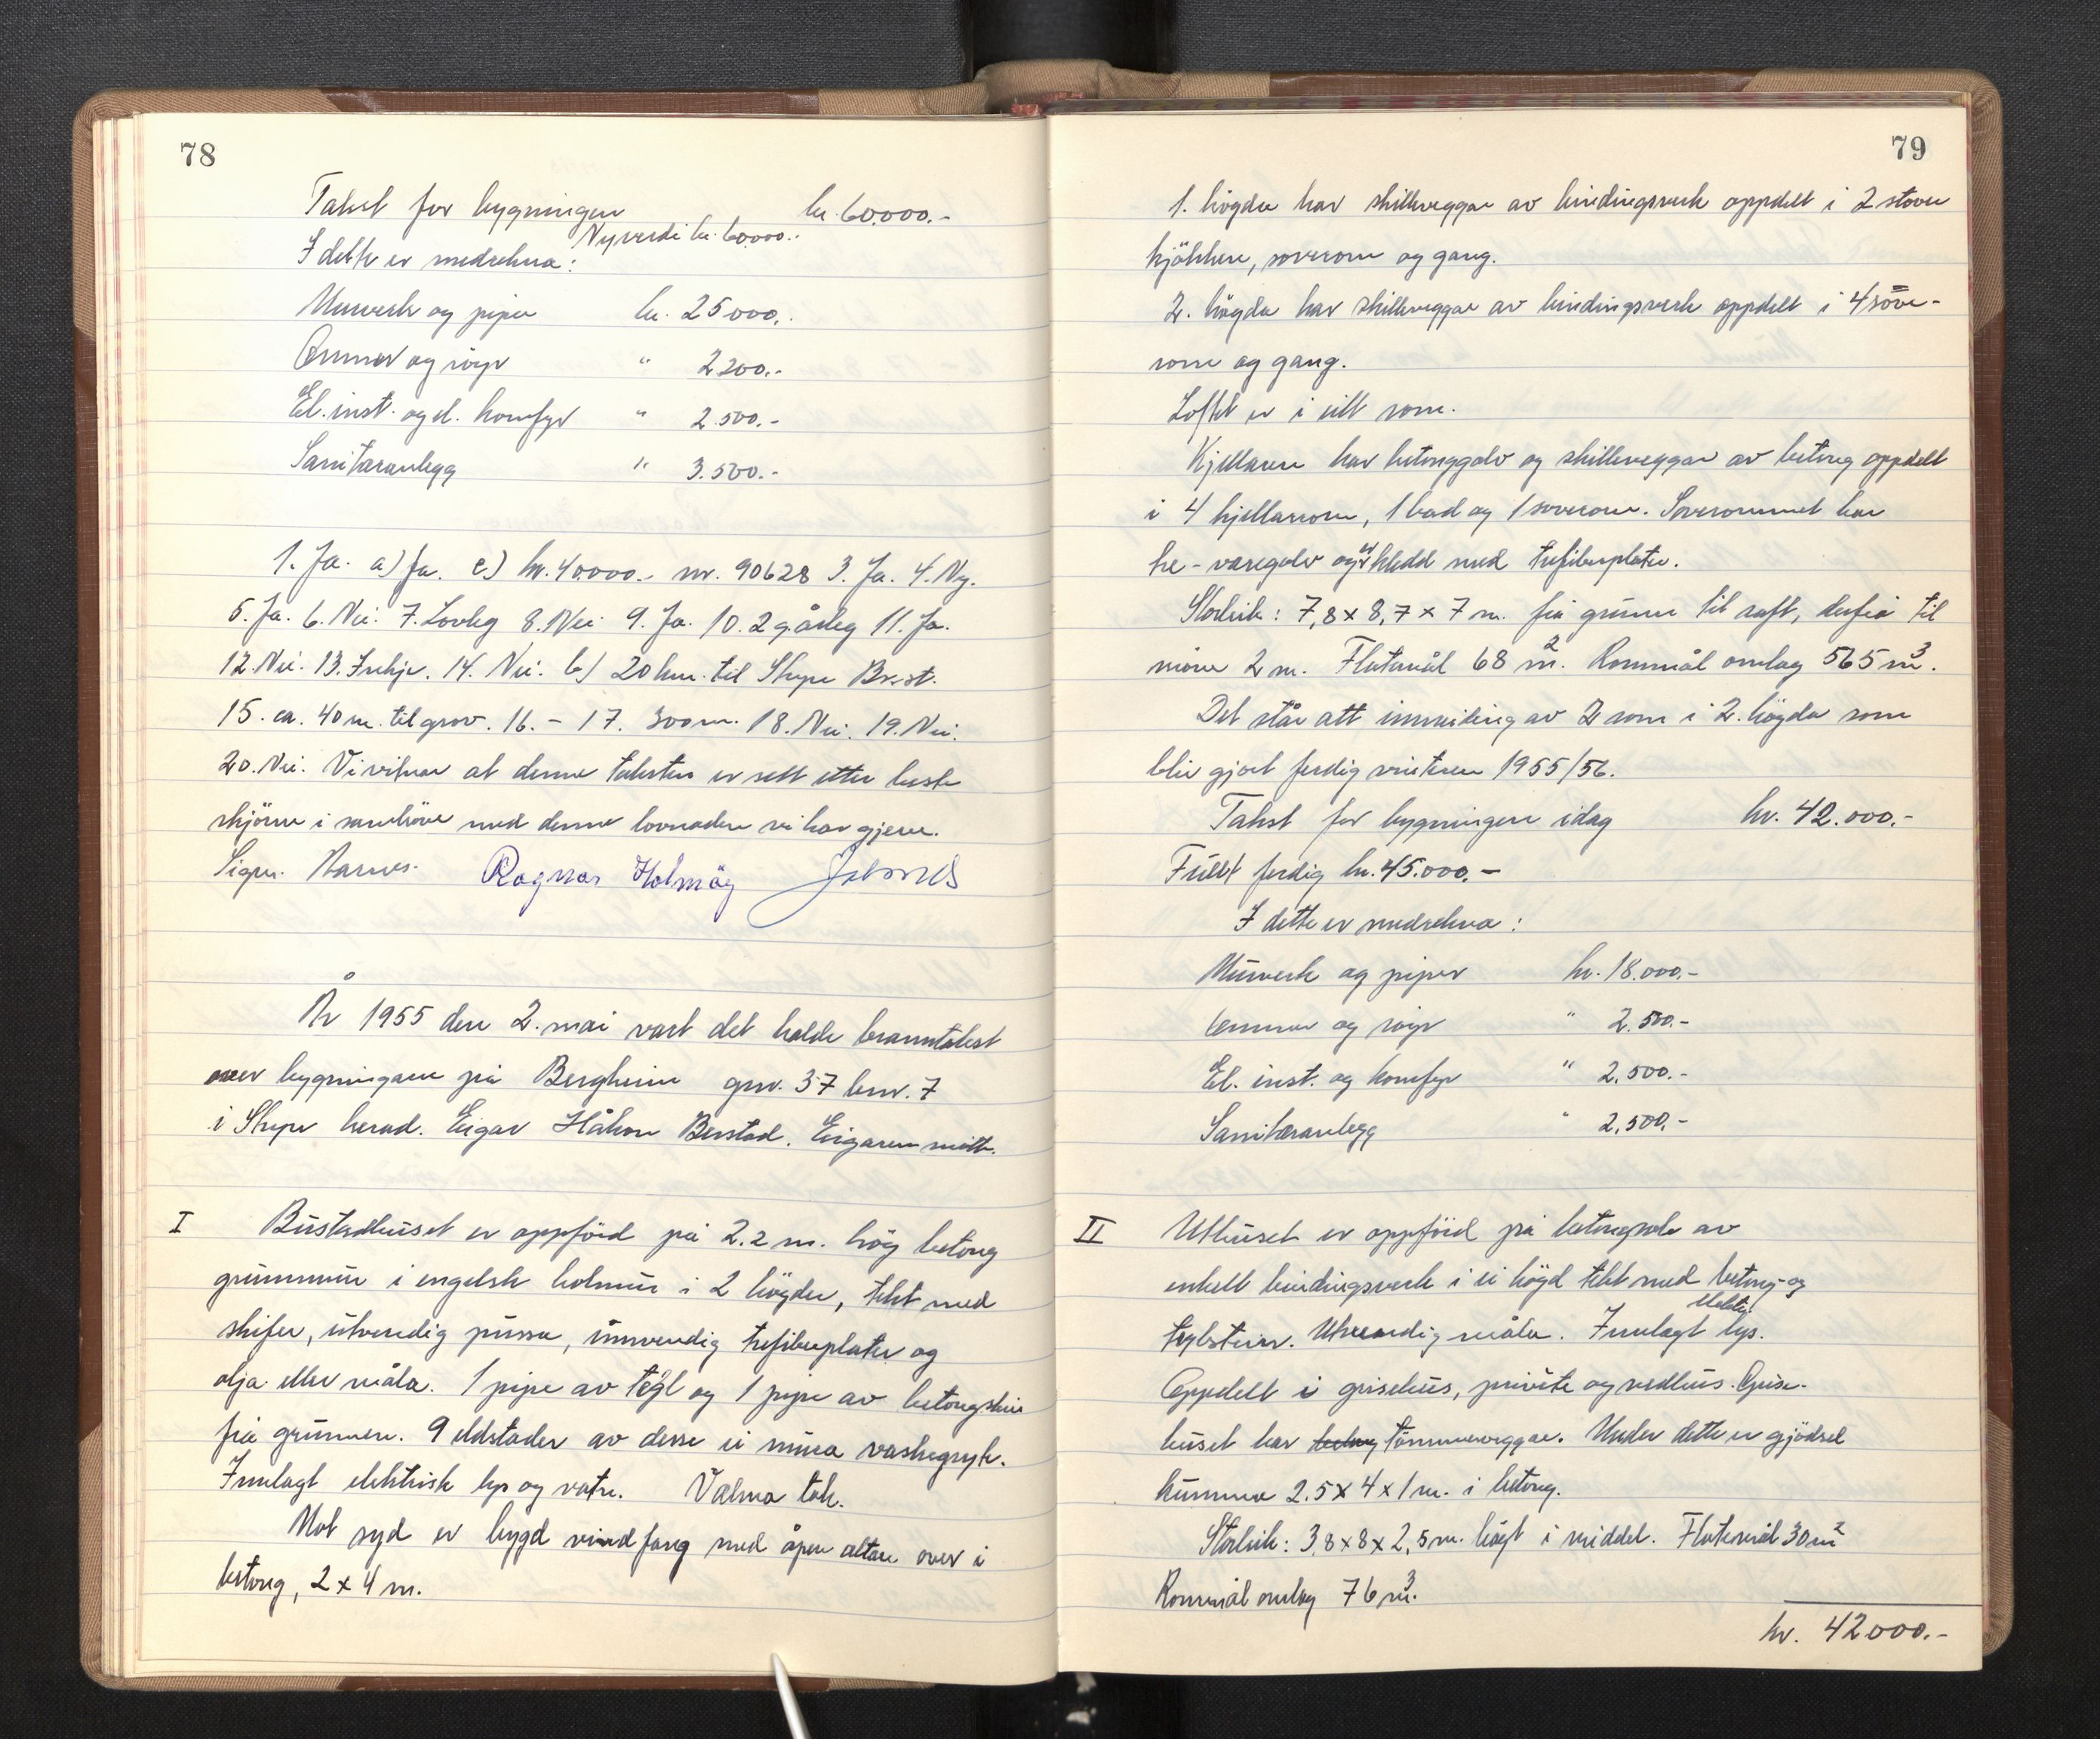 78
Takst for bygningen kr. 60000.-
Nyverdi kr. 60000.-
I dette er medrekna:
Murverk og piper kr. 25000.-
Omnar og røyr " 2200.-
El. inst. og el. komfyr " 2.500.-
Sanitæranlegg " 3.500.-
1. Ja. a) Ja. c) kr. 40000.- nr. 90628 3. Ja. 4. Ny.
5. Ja. 6. Nei. 7. Lovleg 8. Nei 9. Ja. 10. 2 gårleg 11. Ja.
12. Nei. 13. Inkje. 14. Nei. b) 20 km. til Skipe Br.st.
15. ca. 40 m. til grov. 16. - 17. 300 m. 18. Nei. 19. Nei.
20. Nei. Vi vitnar at denne taksten er sett etter beste
skjönn i samhöve med denne lovnaden vi har gjeve.
Sign. Ragnar Holmöy
År 1955 den 2. mai vart det halde branntakst
over bygningane på Bergheim gnr. 37 bnr. 7
i Skipe herad. Eigar Håkon Berstad. Eigaren mötte.
I Bustadhuset er oppförd på 2.2 m. hög betong
grunnmur i engelsk holmur i 2 högder, tekt med
skifer, utvendig pussa, innvendig trefiberplater og
olja eller måla. 1 pipe av tegl og 1 pipe av betongstein
frå grunnen. 9 eldstader av desse ei mura vaskegryte.
Innlagt elektrisk lys og vatn. Valma tak.
Mot syd er bygd vindfang med åpen altan over i
betong, 2 x 4 m.
79
1. högda har skilleveggar av bindingsverk oppdelt i 2 stover
kjökken, soverom og gang.
2. högda har skilleveggar av bindingsverk oppdelt i 4 söve-
rom og gang.
Loftet er i eitt rom.
Kjellaren har betonggolv og skilleveggar av betong oppdelt
i 4 kjellarrom, 1 bad og 1 soverom. Soverommet har
tre-varegolv og er kledd med trefiberplater.
Storleik: 7,8 x 8,7 x 7 m. frå grunn til raft, derfrå til
möne 2 m. Flatemål 68 m². Rommål omlag 565 m³.
Det står att innreiing av 2 rom i 2. högda som
blir gjort ferdig vinteren 1955/56.
Takst for bygningen idag kr. 42.000.-
Fullt ferdig kr. 45.000.-
I dette er medrekna:
Murverk og piper kr. 18.000.-
Omnar og röyr " 2.500.-
El. inst. og komfyr " 2.500.-
Sanitæranlegg " 2.500.-
II Uthuset er oppförd på betongsole av
enkelt bindingsverk i ei högd tekt med betong- og
teglsteinar. Utvendig måla. Innlagt elektr. lys.
Oppdelt i grisehus, privéte og vedhus. Grise-
huset har betong tömmerveggar. Under dette er gjödsel
kumma 2.5 x 4 x 1 m. i betong.
Storleik: 3,8 x 8 x 2,5 m. högt i middel. Flatemål 30 m²
Rommål omlag 76 m³.
kr. 42000.-